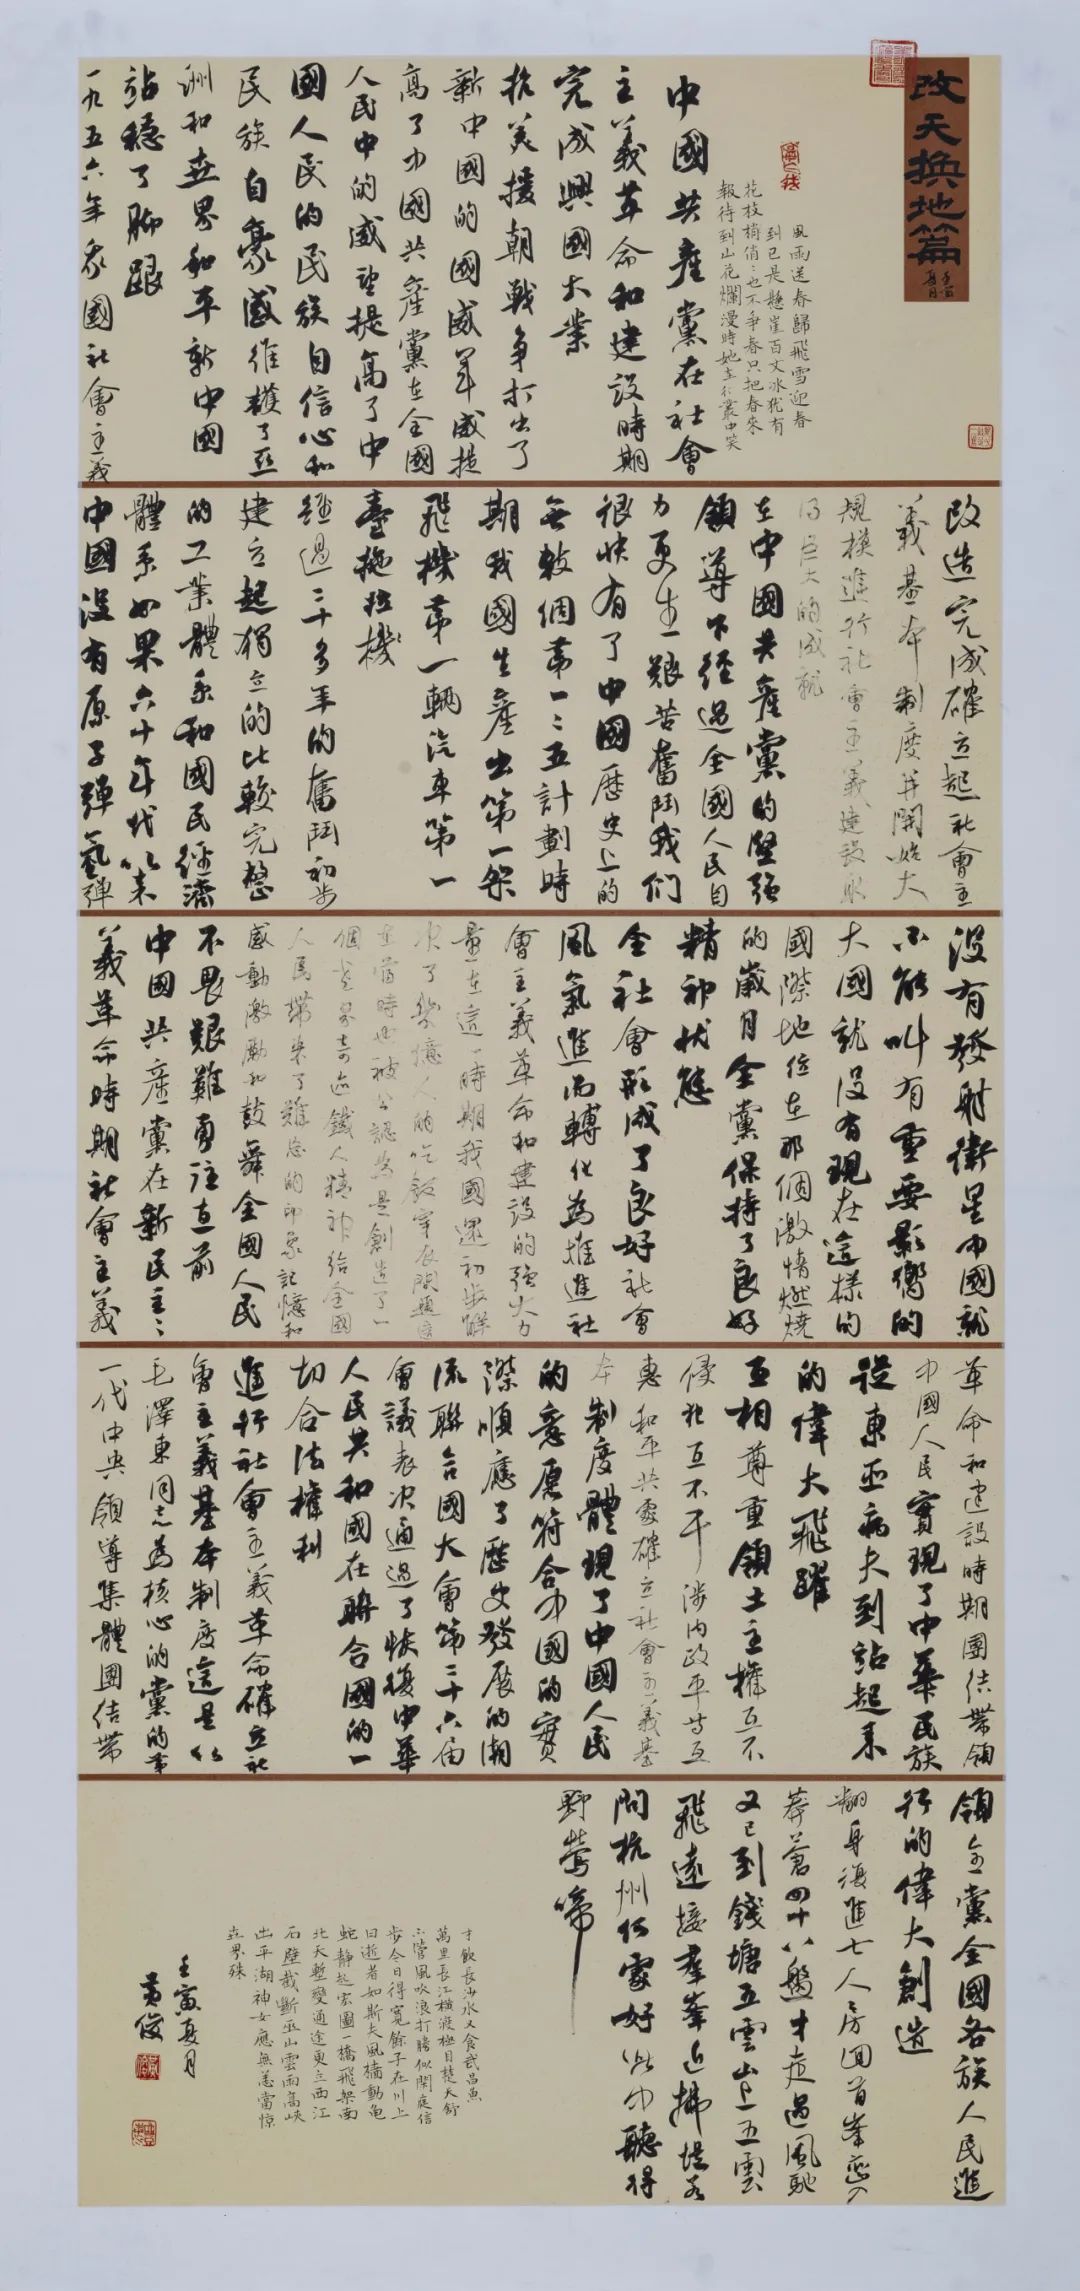 改天换地篇
壬寅夏月
風雨送春歸飛雪迎春
到已是懸崖百丈冰猶有
花枝梢俏〻也不爭春只把春來
報待到山花爛漫時她在叢中笑
中國共產黨在社會
主義革命和建設時期
完成興國大業
抗美援朝戰争打出了
新中國的國威軍威提
高了中國共產黨在全國
人民中的威望提高了中
國人民的民族自信心和
民族自豪感維護了亞
洲和世界和平新中國
站稳了脚跟
一九五六年我國社會主義
改造完成確立起社會主
義基本制度并開始大
規模進行社會主義建設取
得巨大的成就
在中國共產黨的堅强
領導下經過全國人民自
力更生艱苦奮鬥我們
很快有了中國歷史上的
無數個第一一五計劃時
期我國生產出第一架
飛機第一輛汽車第一
臺拖拉機
經過二十多年的奮鬥初步
建立起獨立的比較完整
的工業體系和國民經濟
體系如果六十年代以来
中國没有原子彈氫彈
没有發射衛星中國就
不能叫有重要影響的
大國就没有現在這樣的
國際地位在那個激情燃燒
的歲月全黨保持了良好
精神狀態
全社會形成了良好社會
風氣進而轉化為推進社
會主義革命和建設的强大力
量在這一時期我國還初步解
决了幾億人的吃飯穿衣問題這
在當時也被公認為是創造了一
個世界奇迹鐵人精神給全國
人民帶来了難忘的印象記憶和
感動激勵和鼓舞全國人民
不畏艱難勇往直前
中國共產黨在新民主〻
義革命時期社會主義
革命和建設時期團结帶領
中國人民實現了中華民族
從東亞病夫到站起来
的偉大飛躍
互相尊重領土主權互不
侵犯互不干涉内政平等互
惠和平共處確立社會主義基
本制度體現了中國人民
的意愿符合中國的實
際順應了歷史發展的潮
流聯合國大會第二十六届
會議表决通過了恢復中華
人民共和國在聯合國的一
切合法權利
進行社會主義革命確立社
會主義基本制度這是以
毛澤東同志為核心的黨的第
一代中央領導集體團结帶
領全黨全國各族人民進
行的偉大創造
翻身復進七人房回首峯巒入
莽蒼四十八盤才走過風馳
又已到錢塘五雲山上五雲
飛遠接羣峯近拂堤若
問杭州何處好此中聽得
野鶯啼
才飲長沙水又食武昌魚
萬里長江横渡極目楚天舒
不管風吹浪打勝似閑庭信
步今日得寬餘子在川上
曰逝者如斯夫風檣動龜
蛇静起宏圖一橋飛架南
北天塹變通途更立西江
石壁截斷巫山雲雨高峡
出平湖神女應無恙當惊
世界殊
壬寅夏月
黄俊